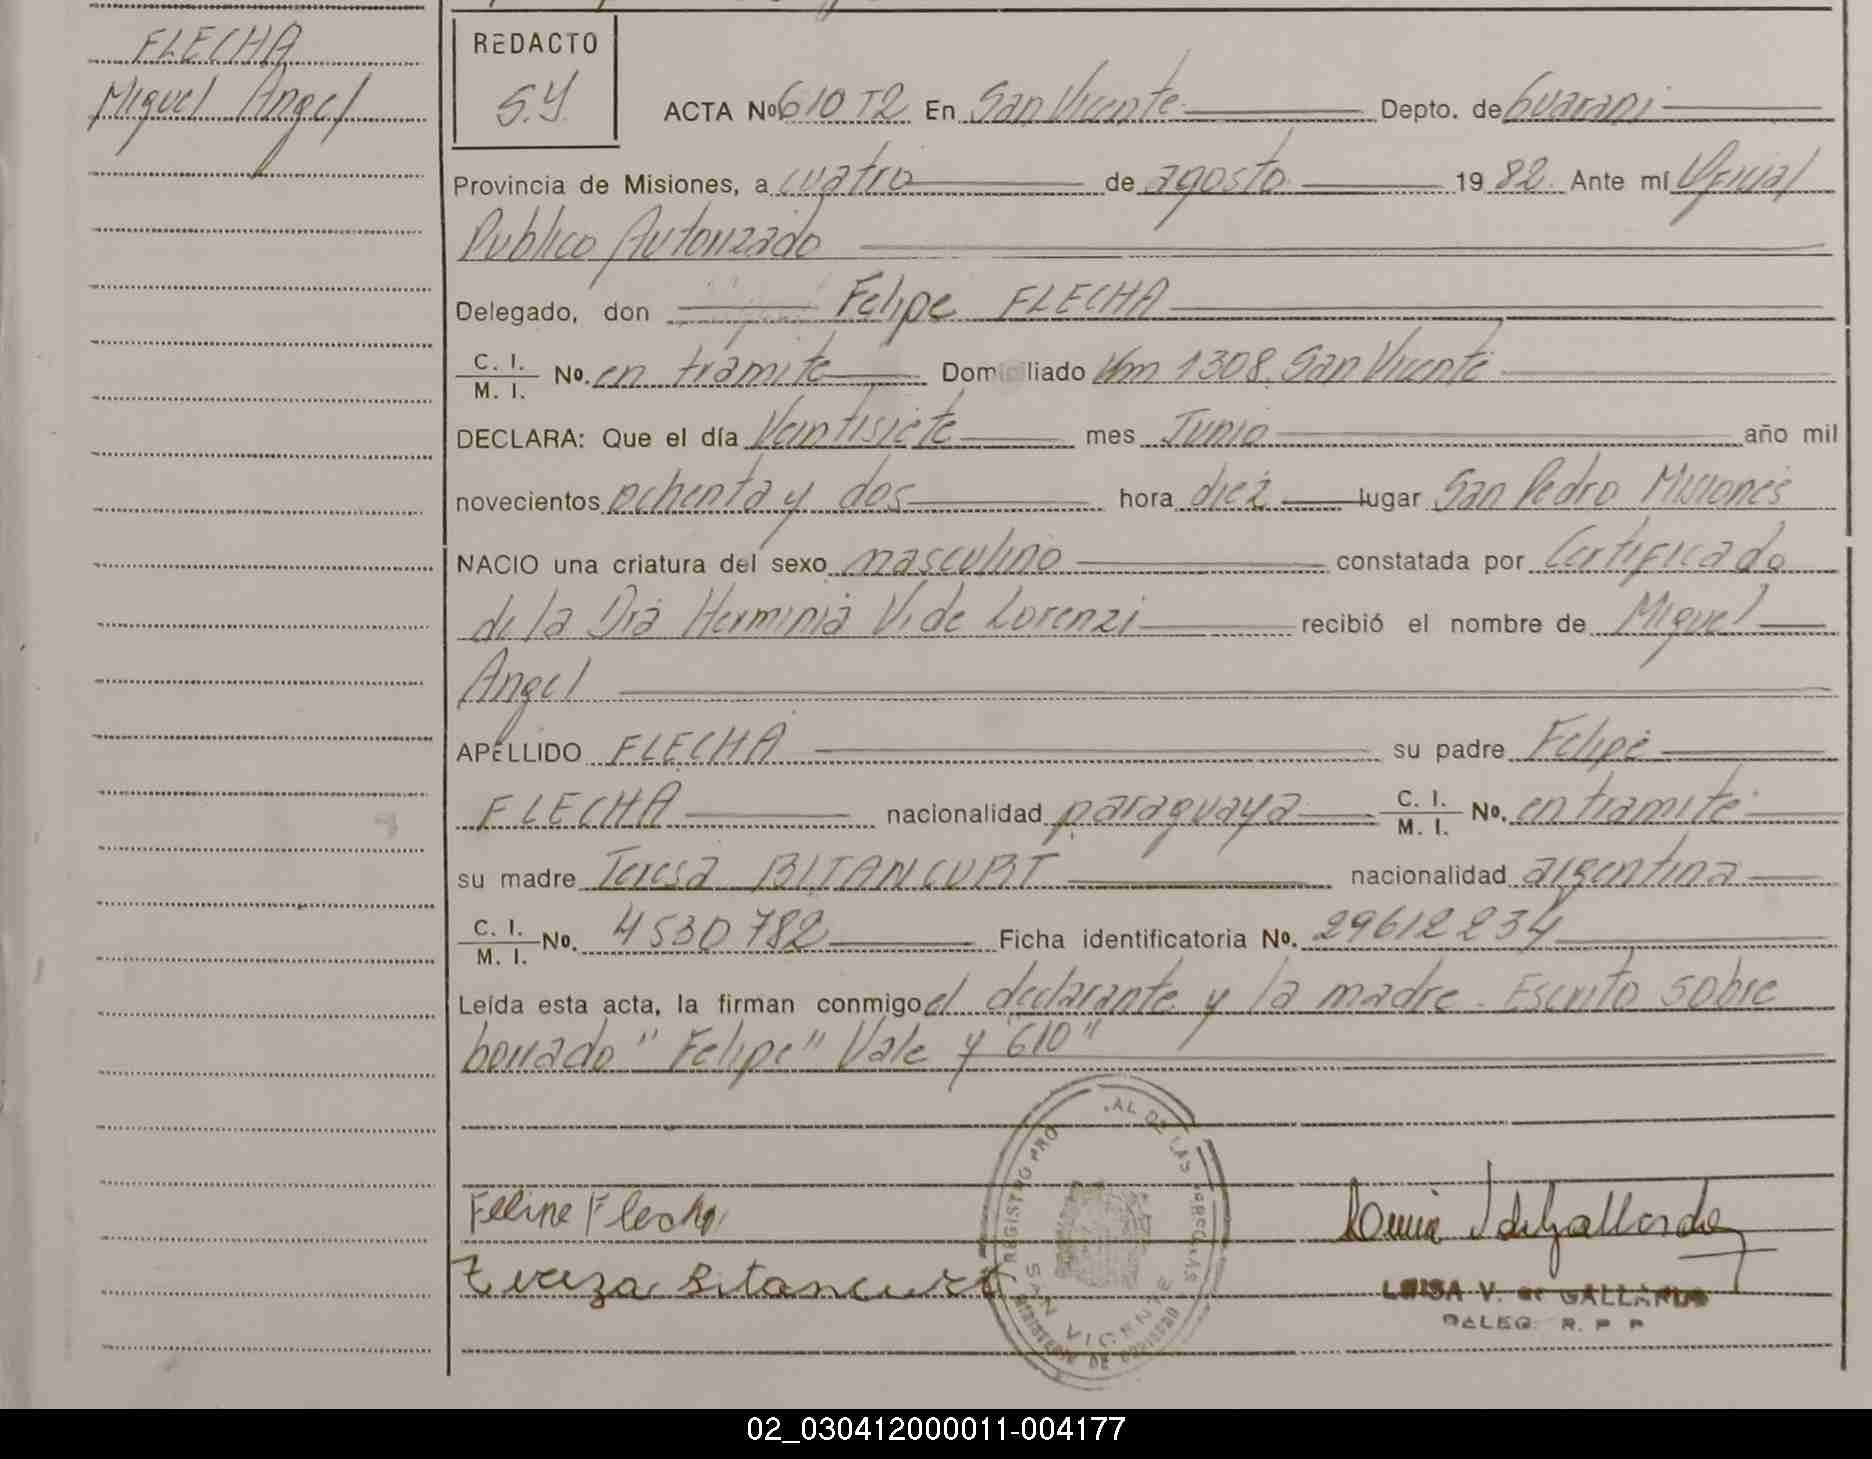 FLECHA
Miguel Angel
REDACTO
S.Y.
ACTA Nº 610 T2 En San Vicente Depto. de Guarani
Provincia de Misiones, a cuatro de agosto 1982. Ante mí Oficial
Publico Autorizado
Delegado, don Felipe FLECHA
C. I. / M. I. No. en tramite Domiciliado Km 1308 San Vicente
DECLARA: Que el día Veintisiete mes Junio año mil
novecientos ochenta y dos hora diez lugar San Pedro Misiones
NACIO una criatura del sexo masculino constatada por Certificado
de la Dra Herminia V. de Lorenzi recibió el nombre de Miguel
Angel
APELLIDO FLECHA su padre Felipe
FLECHA nacionalidad paraguaya C. I. / M. I. No. en tramite
su madre Teresa BITANCURT nacionalidad argentina
C. I. / M. I. No. 4530782 Ficha identificatoria No. 29612234
Leída esta acta, la firman conmigo el declarante y la madre. Escrito sobre
borrado "Felipe" Vale y "610"
Feline Flecha
Tereza Bitancurt
REGISTRO PRO AL DE LAS PERSONAS
SAN VICENTE
MINISTERIO DE GOBIERNO
LUISA V. de GALLARDO
DELEG. R. P. P
02_030412000011-004177